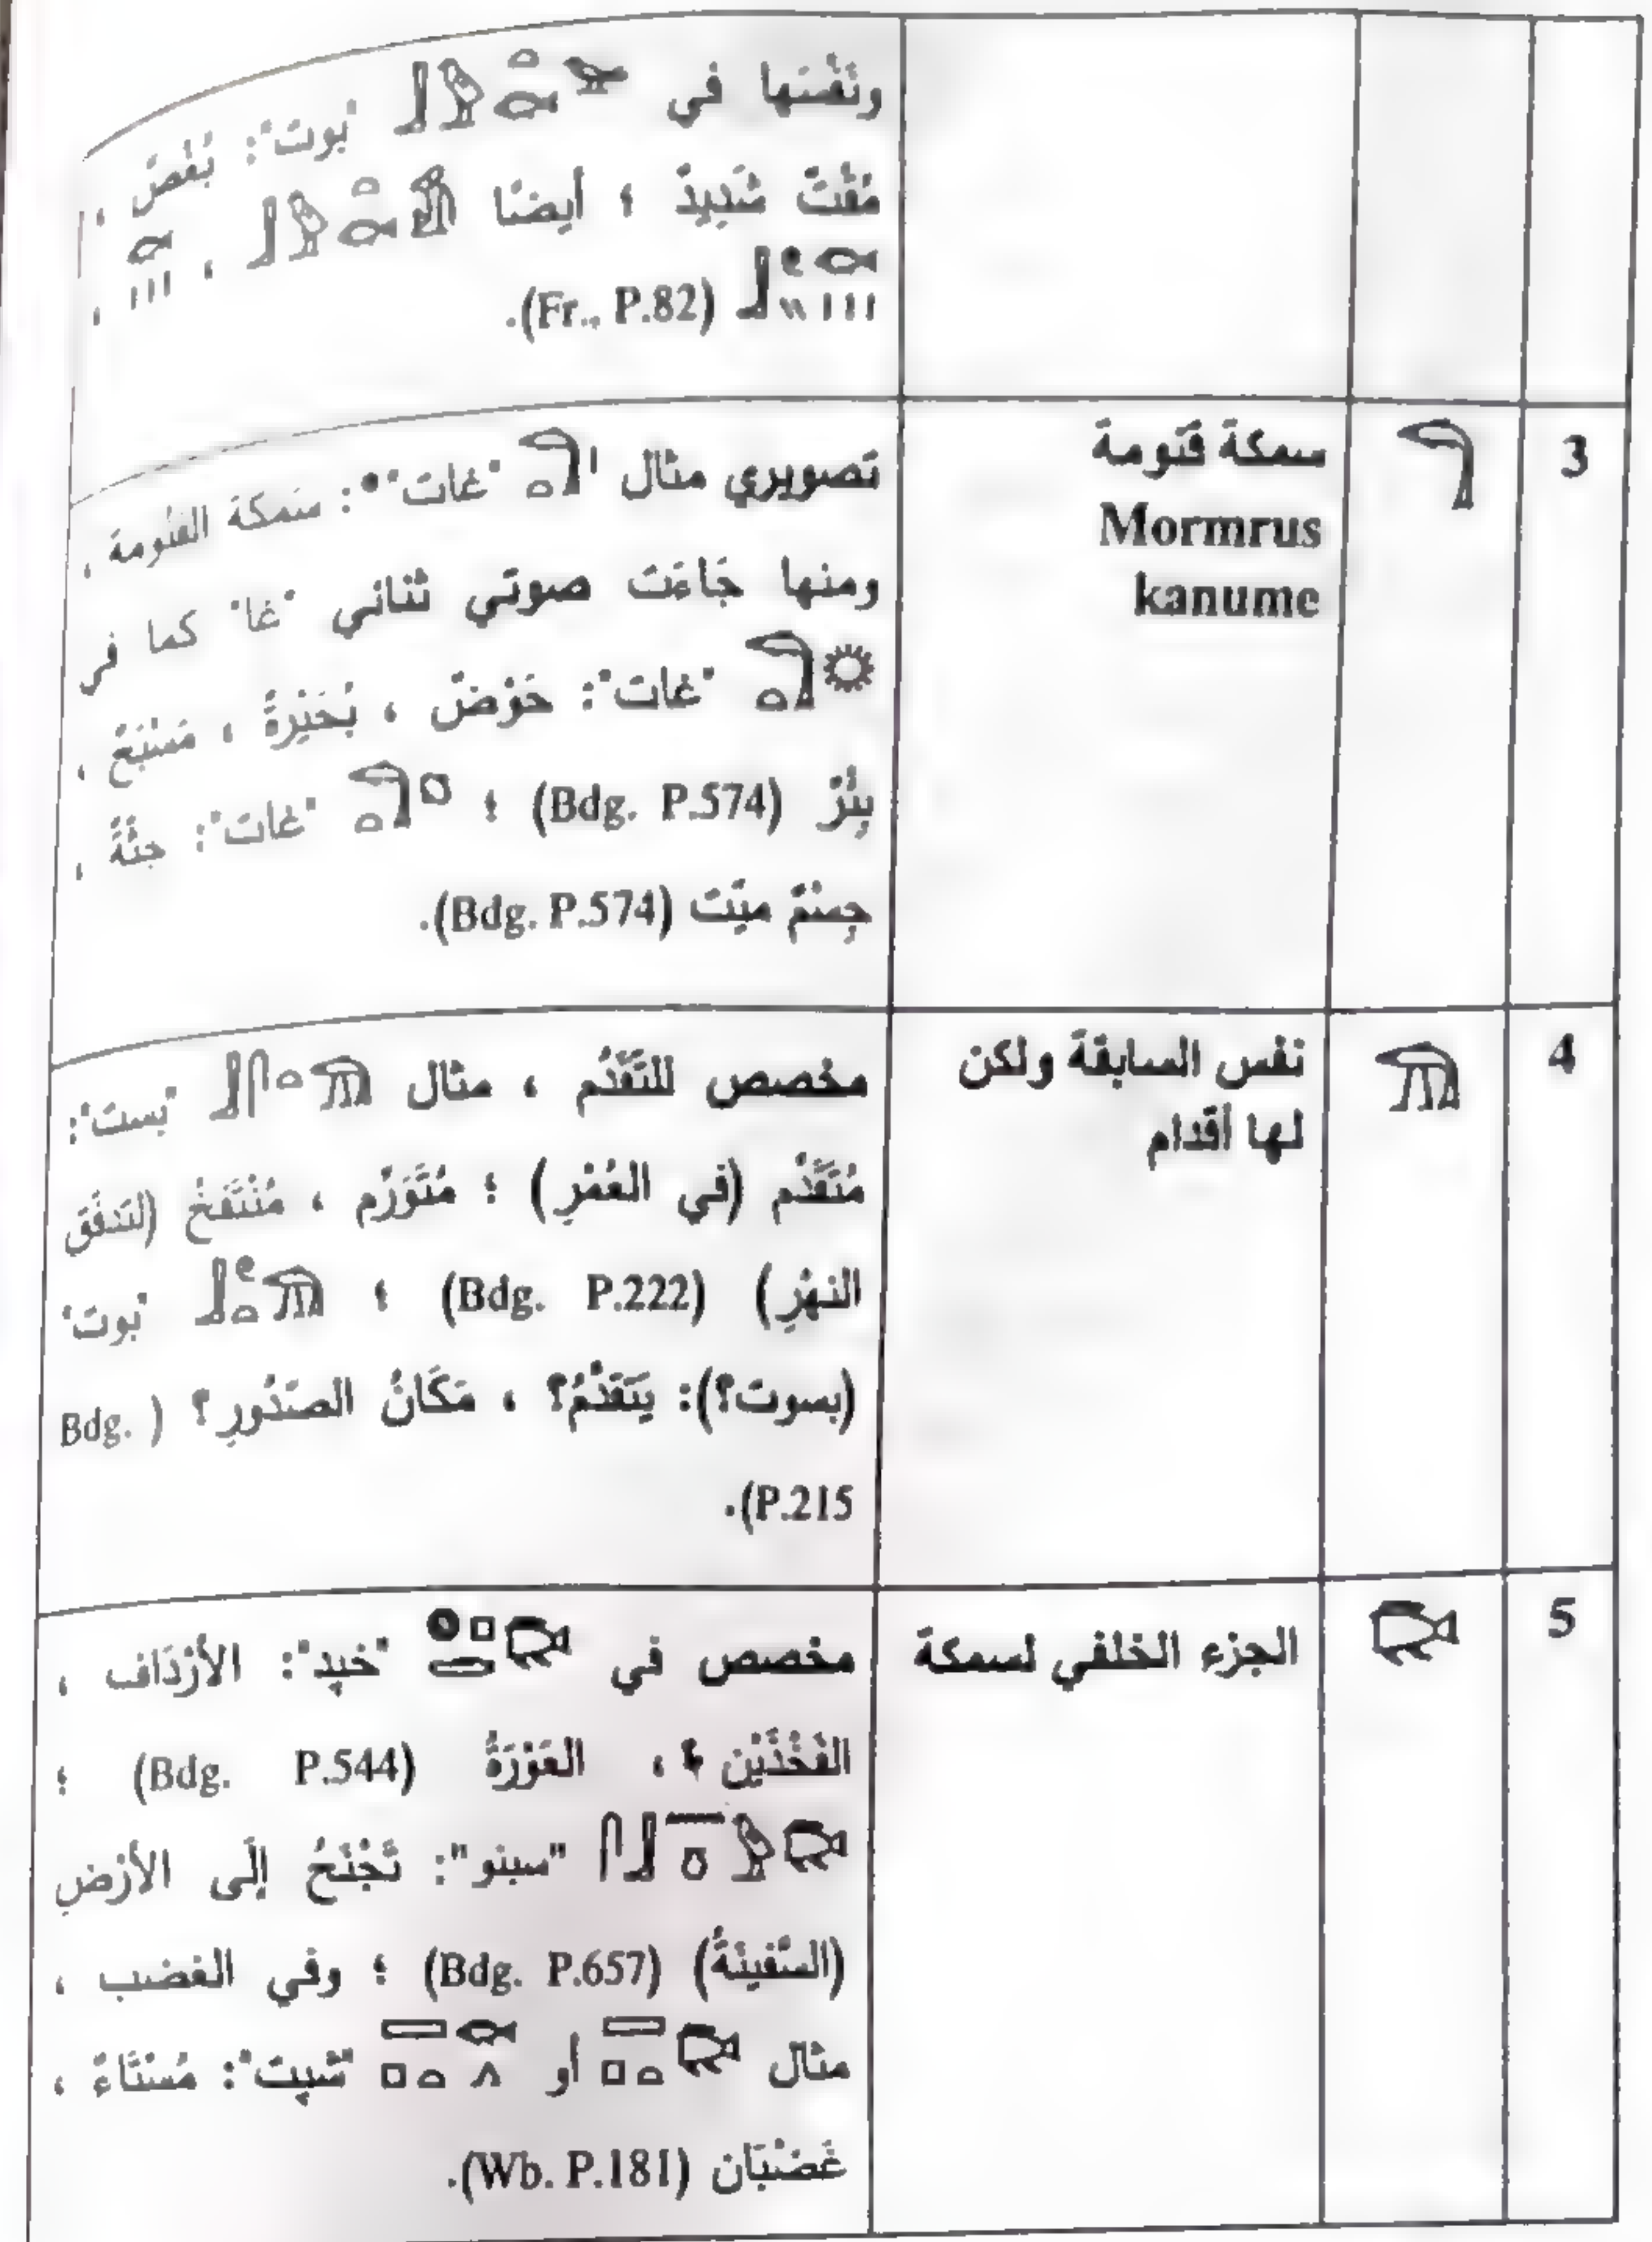 ونَفْسَها في "بوت": بُغْضٌ ،
مُقْتٌ شَدِيدٌ ؛ أيضًا ، ،
(Fr., P.82).
3
سمكة قنومة
Mormrus
kanume
تصويري مثال "غات"*: سَمكَة القنُومة ،
ومنها جَاءَت صوتي ثنائي "غا" كما في
"غات": حَوْضٌ ، بُحَيْرةٌ ، مَسْبَحٌ ،
بِئْرٌ (Bdg. P.574) ؛ "غات": جثّةٌ ،
جِسْمٌ ميّت (Bdg. P.574).
4
نفس السابقة ولكن
لها أقدام
مخصص للتَّقَدُّم ، مثال "بست":
مُتَقَدِّم (في العُمْرِ) ؛ مُتَوَرِّم ، مُنْتَفخُ (لتدفُق
النهْرِ) (Bdg. P.222) ؛ "بوت"
(بسوت؟): يَتَقَدَّمُ؟ ، مَكَانُ الصّدُورِ؟ (Bdg.
P.215).
5
الجزء الخلفي لسمكة
مخصص في "خپد": الأرْدَاف ،
الفَخْذَيْن ، العَوْرَةُ (Bdg. P.544) ؛
"سبنو": تَجْنَحُ إلَى الأرْضِ
(السَّفينَةُ) (Bdg. P.657) ؛ وفي الغضب ،
مثال أو "شپت": مُسْتَاءٌ ،
غَضْبَان (Wb. P.181).